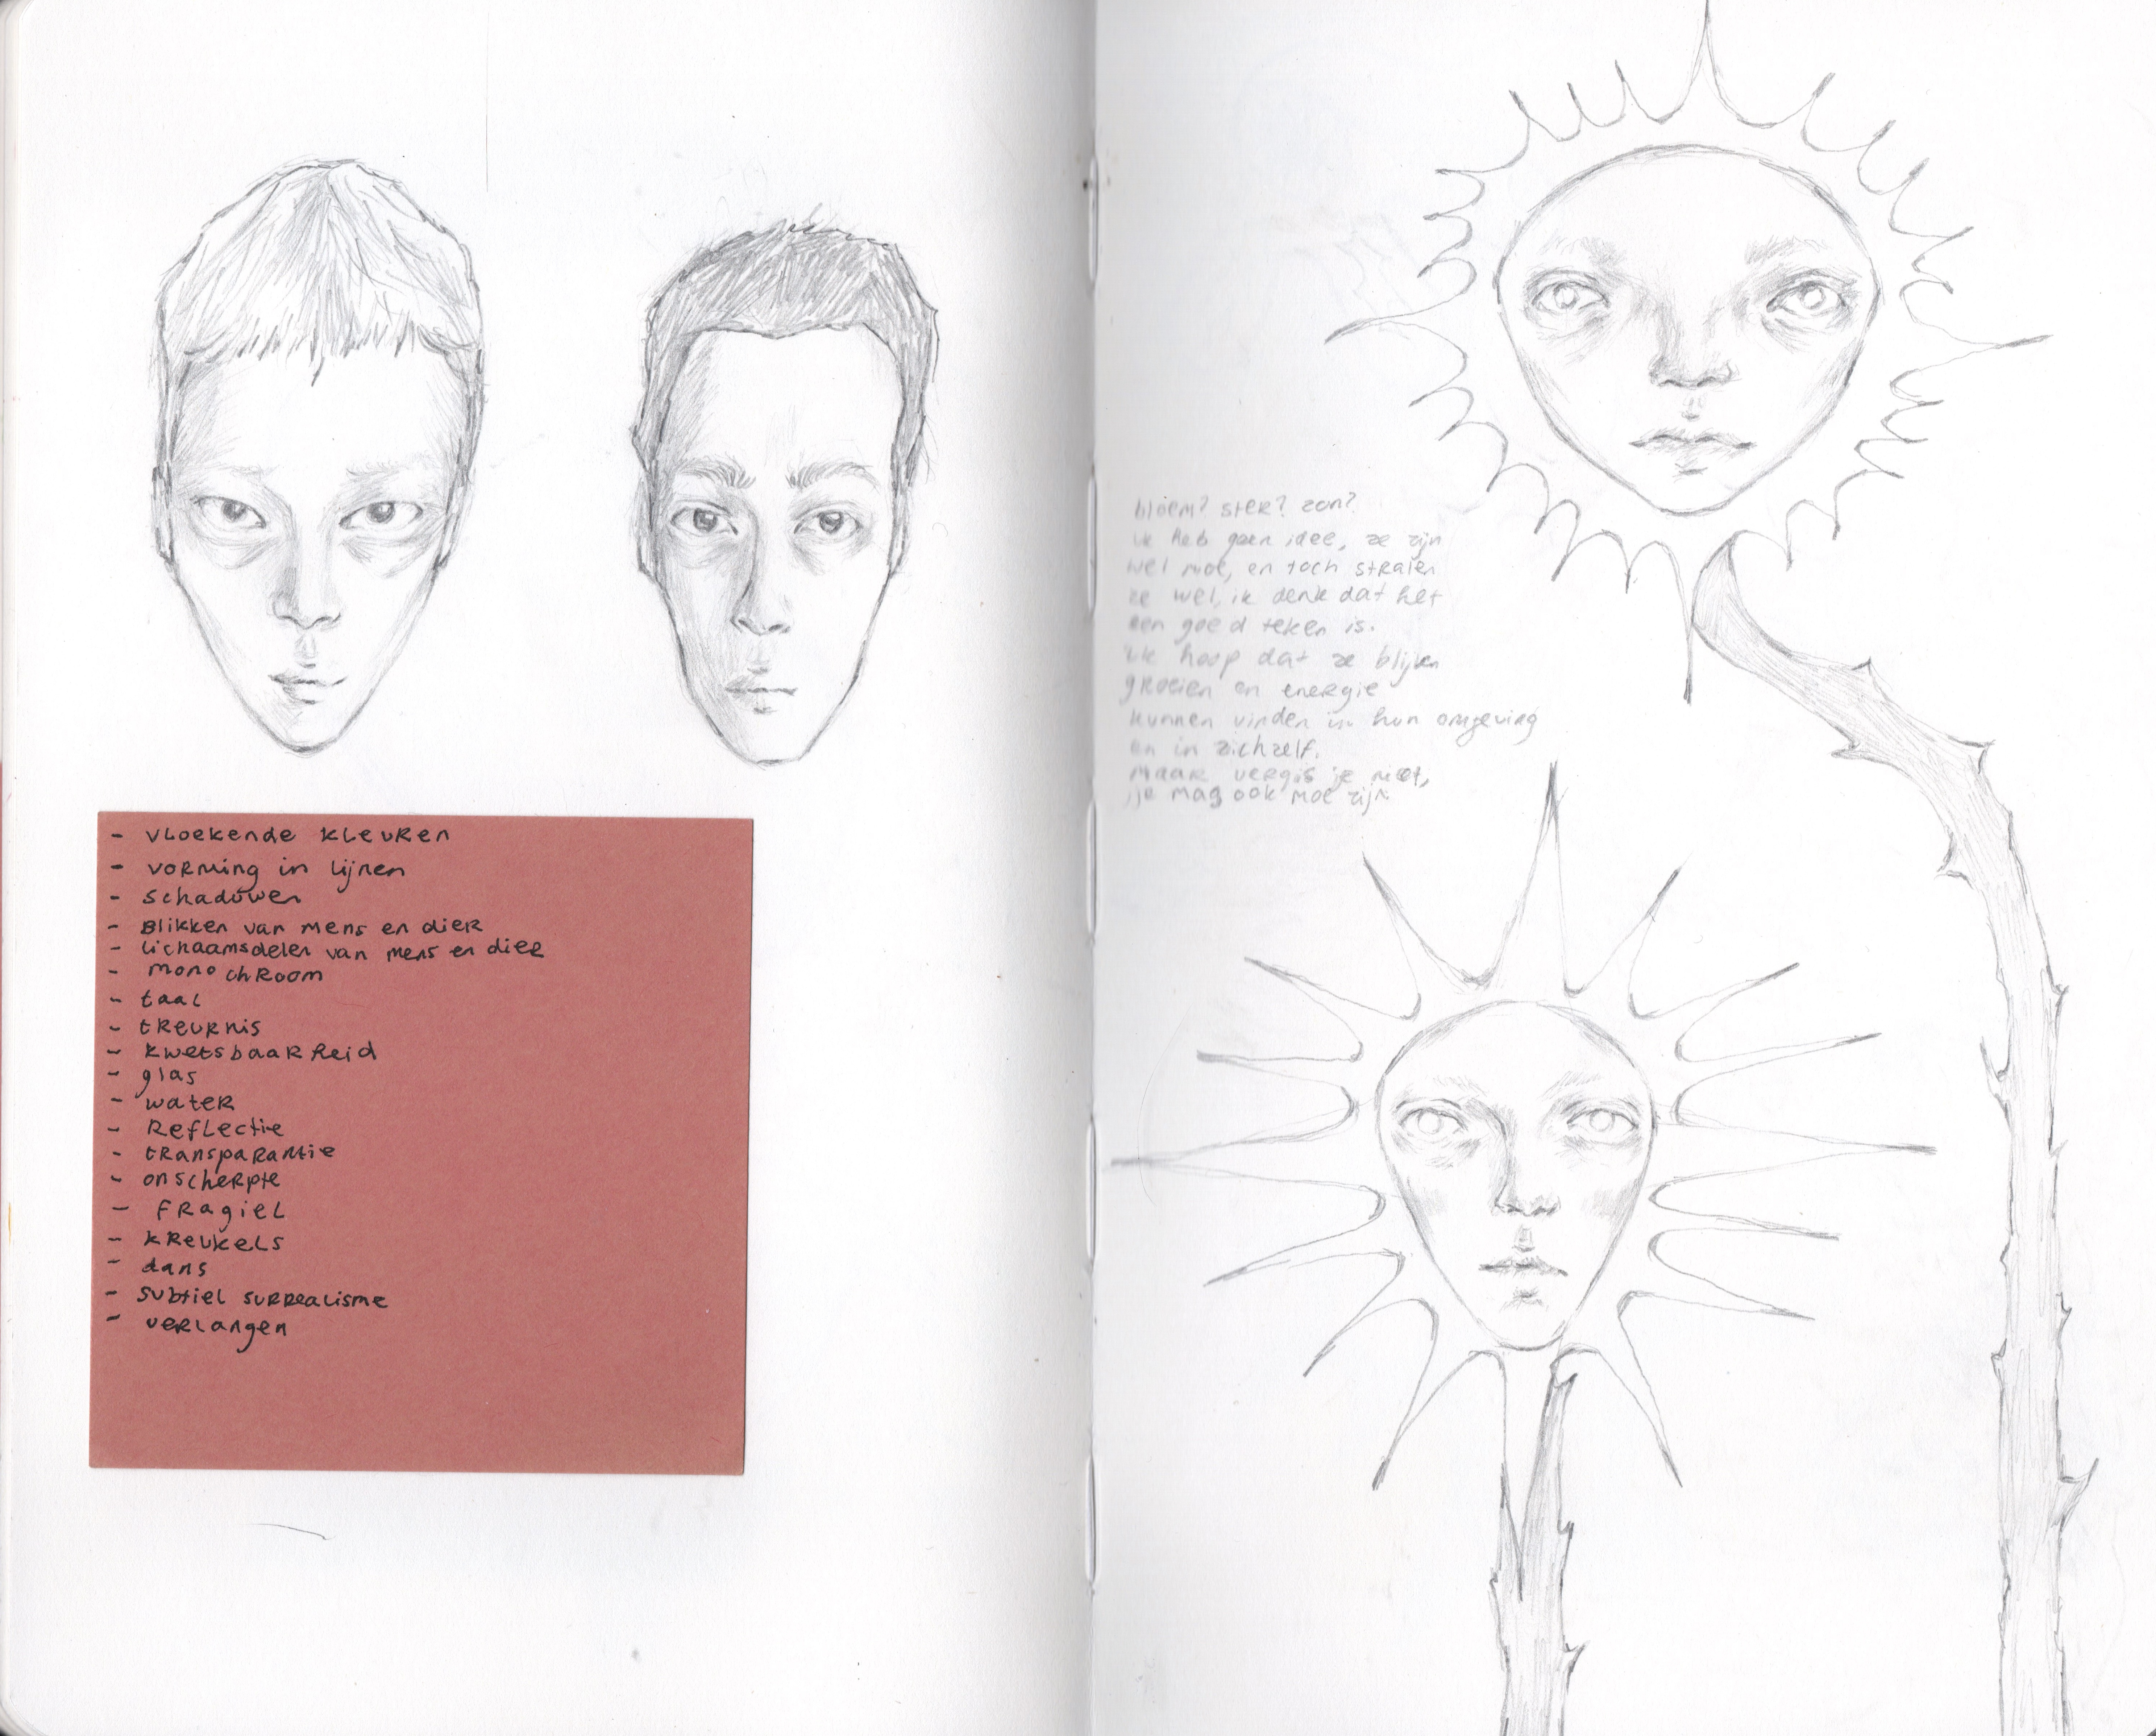 - vloekende kleuren
- vorming in lijnen
- schaduwen
- Blikken van mens en dier
- lichaamsdelen van mens en dier
- monochroom
- taal
- treurnis
- kwetsbaarheid
- glas
- water
- Reflectie
- transparantie
- onscherpte
- fragiel
- kreukels
- dans
- subtiel surrealisme
- verlangen
bloem? ster? zon?
ik heb geen idee, ze zijn
wel moe, en toch stralen
ze wel, ik denk dat het
een goed teken is.
ik hoop dat ze blijven
groeien en energie
kunnen vinden in hun omgeving
en in zichzelf.
maar vergis je niet,
je mag ook moe zijn.